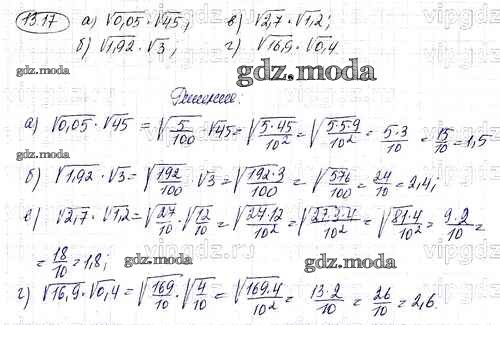 13.17 а) √0,05 · √45; в) √2,7 · √1,2;
б) √1,92 · √3; г) √16,9 · √0,4.
gdz.moda
gdz.moda
Решение:
а) √0,05 · √45 = √(5/100) · √45 = √(5·45/10²) = √(5·5·9/10²) = 5·3/10 = 15/10 = 1,5
gdz.moda
б) √1,92 · √3 = √(192/100) · √3 = √(192·3/100) = √(576/100) = 24/10 = 2,4;
в) √2,7 · √1,2 = √(27/10) · √(12/10) = √(27·12/10²) = √(27·3·4/10²) = √(81·4/10²) = 9·2/10 =
= 18/10 = 1,8;
gdz.moda
gdz.moda
г) √16,9 · √0,4 = √(169/10) · √(4/10) = √(169·4/10²) = 13·2/10 = 26/10 = 2,6.